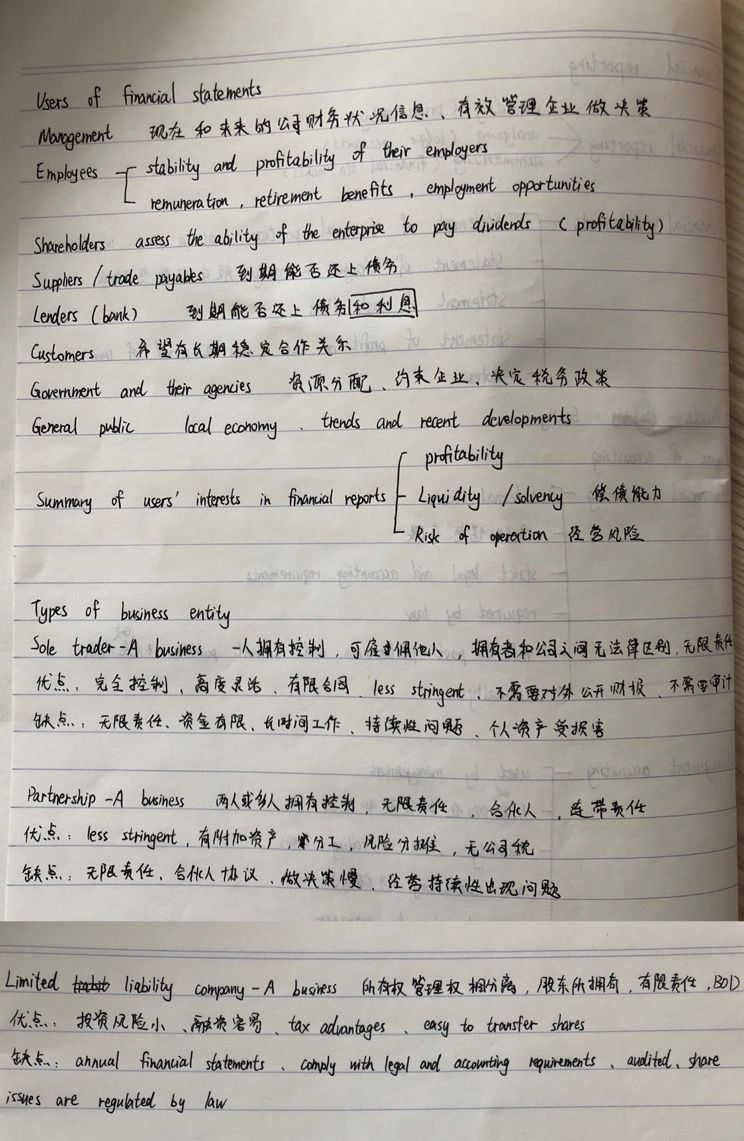 Users of financial statements
Management 现在和未来的公司财务状况信息、有效管理企业做决策
Employees stability and profitability of their employers
remuneration, retirement benefits, employment opportunities
Shareholders assess the ability of the enterprise to pay dividends (profitability)
Suppliers / trade payables 到期能否还上债务
Lenders (bank) 到期能否还上债务和利息
Customers 希望有长期稳定合作关系
Government and their agencies 资源分配、约束企业、决定税务政策
General public local economy、trends and recent developments
profitability
Summary of users' interests in financial reports Liquidity / solvency 偿债能力
Risk of operation 经营风险
Types of business entity
Sole trader - A business 一人拥有控制,可雇佣他人,拥有者和公司之间无法律区别,无限责任
优点:完全控制、高度灵活、有限合同、less stringent、不需要对外公开财报、不需要审计
缺点:无限责任、资金有限、长时间工作、持续性问题、个人资产受损害
Partnership - A business 两人或多人拥有控制,无限责任,合伙人,连带责任
优点:less stringent,有附加资产,分工,风险分摊,无公司税
缺点:无限责任、合伙人协议、做决策慢、经营持续性出现问题
Limited liability company - A business 所有权管理权相分离,股东所拥有,有限责任,BOD
优点:投资风险小、融资容易、tax advantages、easy to transfer shares
缺点:annual financial statements、comply with legal and accounting requirements、audited、share
issues are regulated by law